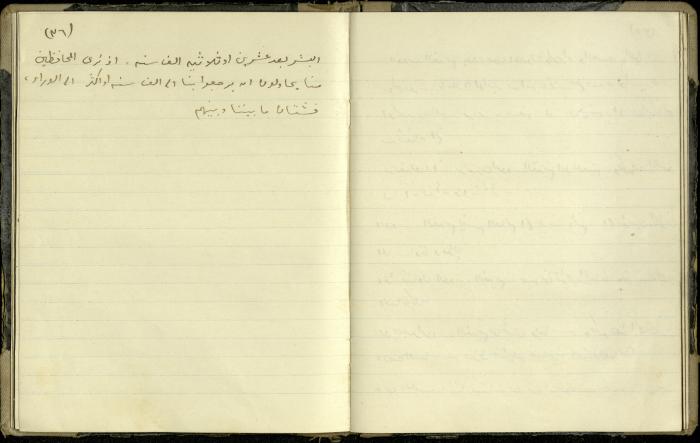 (٣٦)
البشر بعد عشرين او ثلاثين الف سنه . اذ نرى المحافظين
منا يحاولون ان يرجعوا بنا الى الف سنه او اكثر الى الوراء ،
فشتان ما بيننا وبينهم